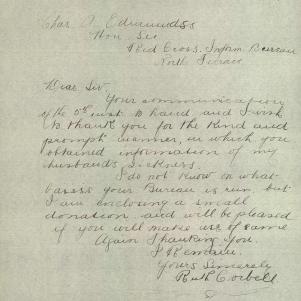 Chas. A. Edmunds
Hon. Sec
Red Cross. Inform. Bureau
North Terrace
Dear Sir.
Your communication
of the 5th inst. to hand and I wish
to thank you for the kind and
prompt manner, in which you
obtained information of my
husbands sickness.
I do not know on what
basis your Bureau is run, but
I am enclosing a small
donation and will be pleased
if you will make use of same
Again Thanking You.
I Remain
Yours Sincerely
Ruth Corbell